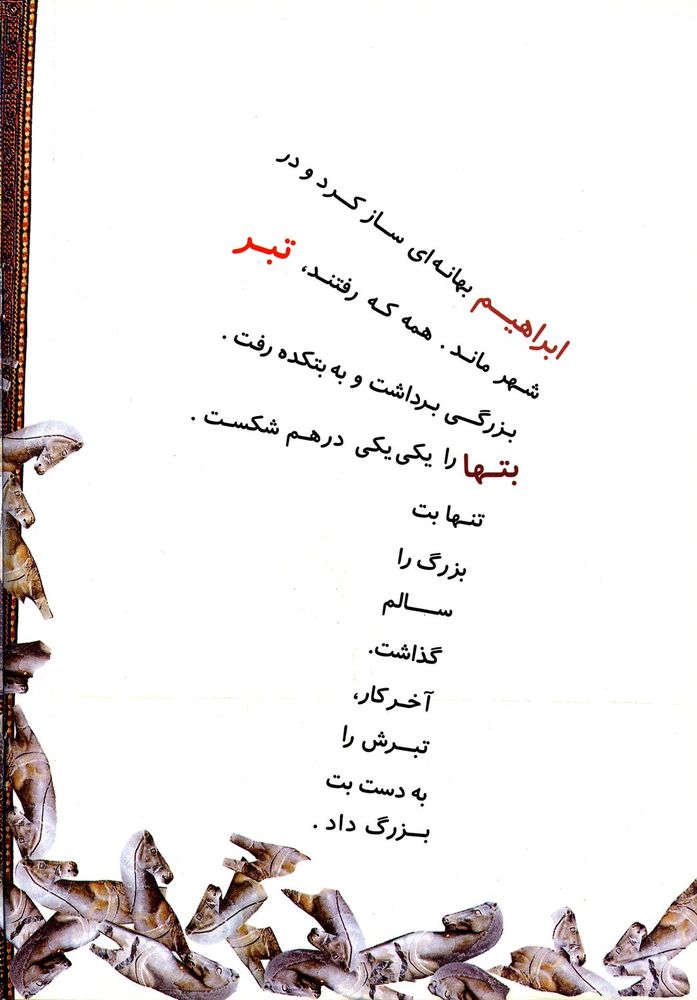 ابراهیم بهانه‌ای ساز کرد و در
شهر ماند. همه که رفتند، تبر
بزرگی برداشت و به بتکده رفت.
بتها را یکی‌یکی درهم شکست.
تنها بت
بزرگ را
سالم
گذاشت.
آخر کار،
تبرش را
به دست بت
بزرگ داد.